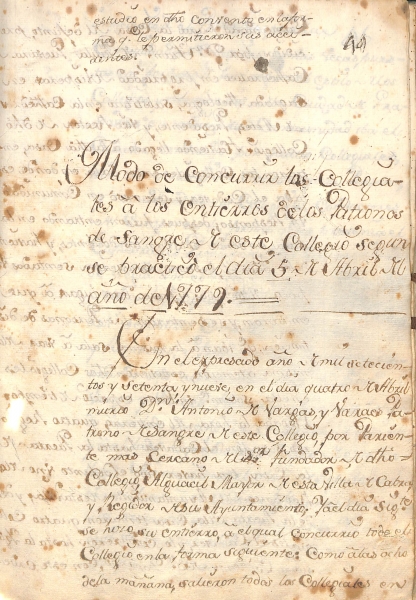 estudio en dho Convento en la for-
ma q. le permitieren sus acci-
dentes.
44
Modo de Concurrir los Collegia-
les â los entierros de los Patronos
de Sangre de este Collegio segun
se practicò el dia 5 de Abril del
año de 1779.
En el expresado año de mil setecien-
tos y setenta y nueve, en el dia quatro de Abril
murio Dn Antonio de Vargas, y Vargas Pa-
trono de Sangre de este Collegio, por Parien-
te mas Cercano del Sr Fundador de dho
Collegio, Alguacil Mayor de esta Villa de
y Regidor de su Ayuntamiento, Y al dia sigte
se hizo su entierro, â el qual Concurrio todo el
Collegio en la forma siguiente: Como â las ocho
de la mañana, salieron todos los Collegiales en